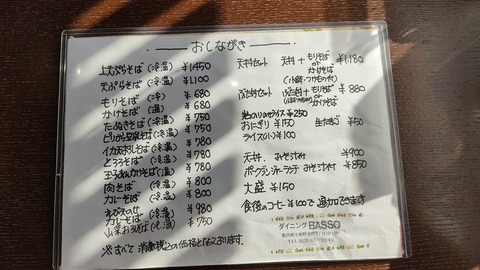 おしながき
上天ぷらそば(冷温) ¥1450
天ぷらそば(冷温) ¥1,100
もりそば(冷) ¥680
かけそば(温) ¥680
たぬきそば(冷温) ¥750
¥750
イカ天おろしそば(冷温) ¥780
とろろそば(冷温) ¥780
¥780
肉そば(冷温) ¥800
カレーそば(温) ¥800
カレーそば(温) ¥980
山菜おろしそば(冷温) ¥750
※すべて消費税込の価格となっております。
天丼セット 天丼+もりそば or かけそば ¥1,180
(小鉢・つけもの付)
ぶた丼セット ぶた丼+もりそば or かけそば ¥880
¥250
おにぎり ¥150 生たまご ¥50
ライス(小) ¥100
天丼、みそ汁付 ¥900
ポークジンジャーランチ みそ汁付 ¥850
大盛 ¥150
食後のコーヒー ¥100で追加できます
ダイニング BASSO